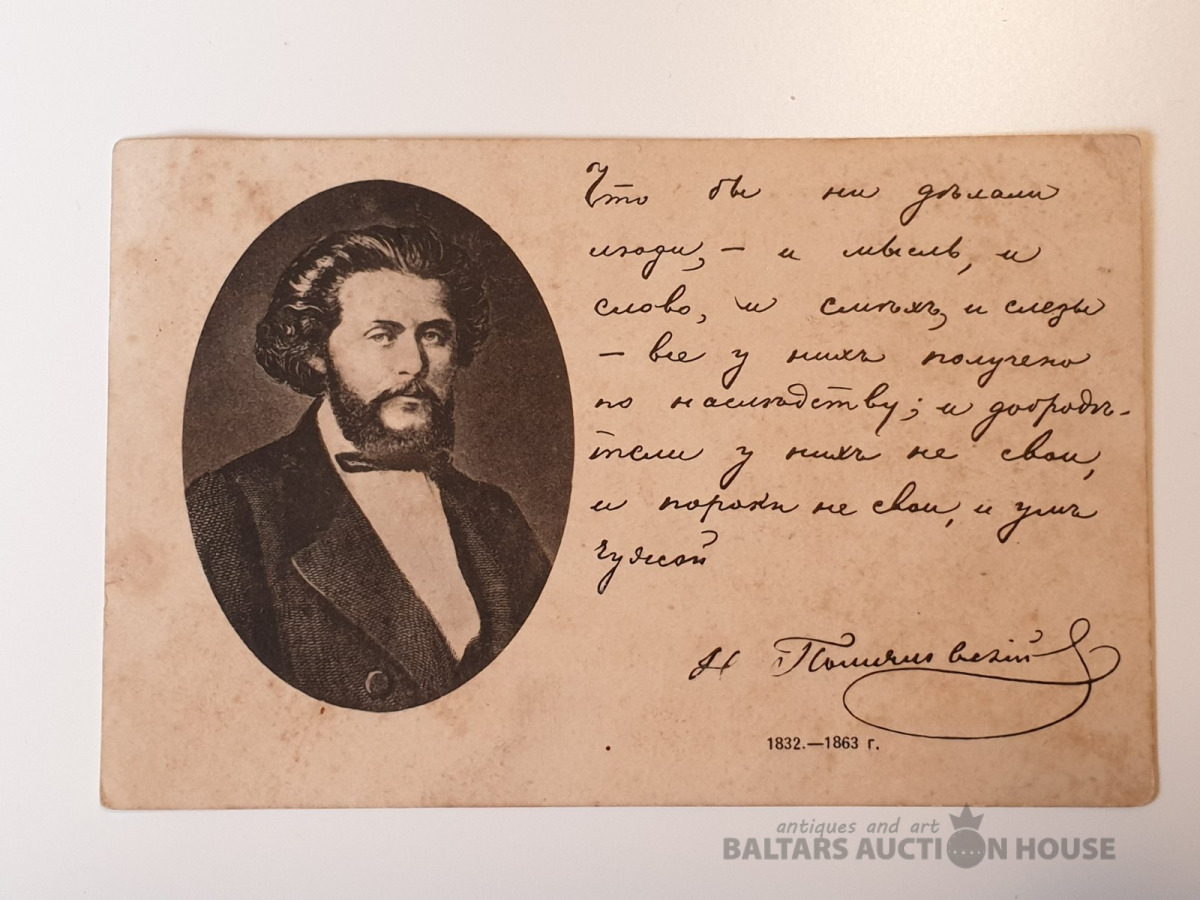 Что бы ни дѣлали
люди, – и мысль, и
слово, и смѣхъ, и слезы
– все у нихъ получено
по наслѣдству; и добродѣ-
тели у нихъ не свои,
и пороки не свои, и умъ
чужой
Н Помяловскій
1832.—1863 г.
antiques and art
BALTARS AUCTION HOUSE